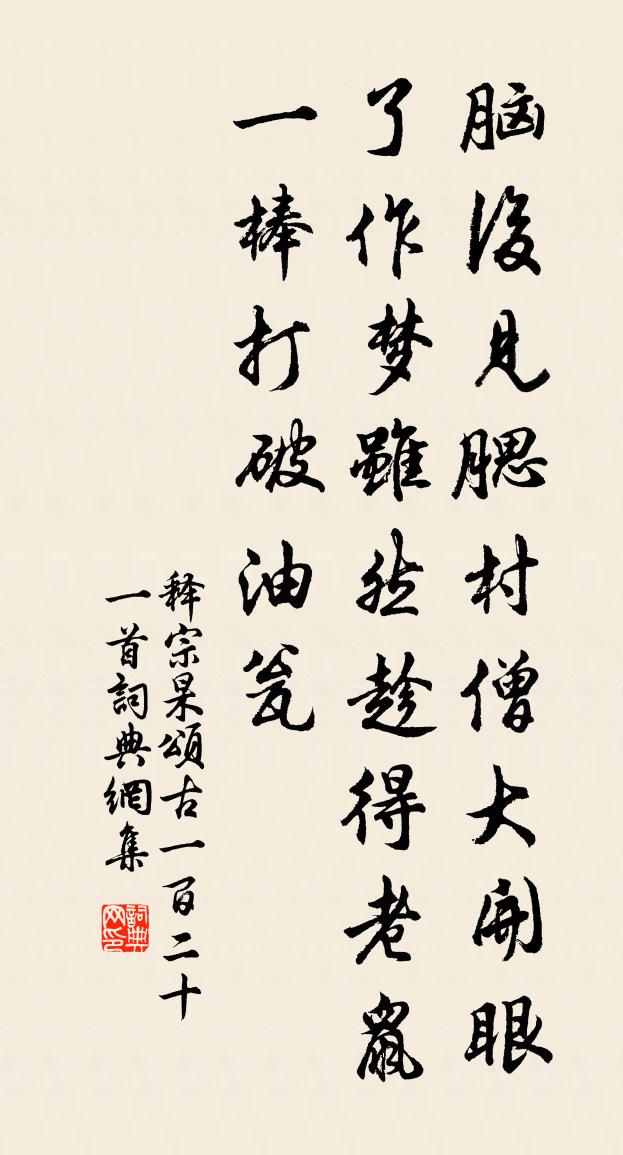 脑後见腮村僧大開眼
了作梦雖然趁得老鼠
一棒打破油瓮
释宗杲頌古一百二十
一首詞典網集
詞典网印